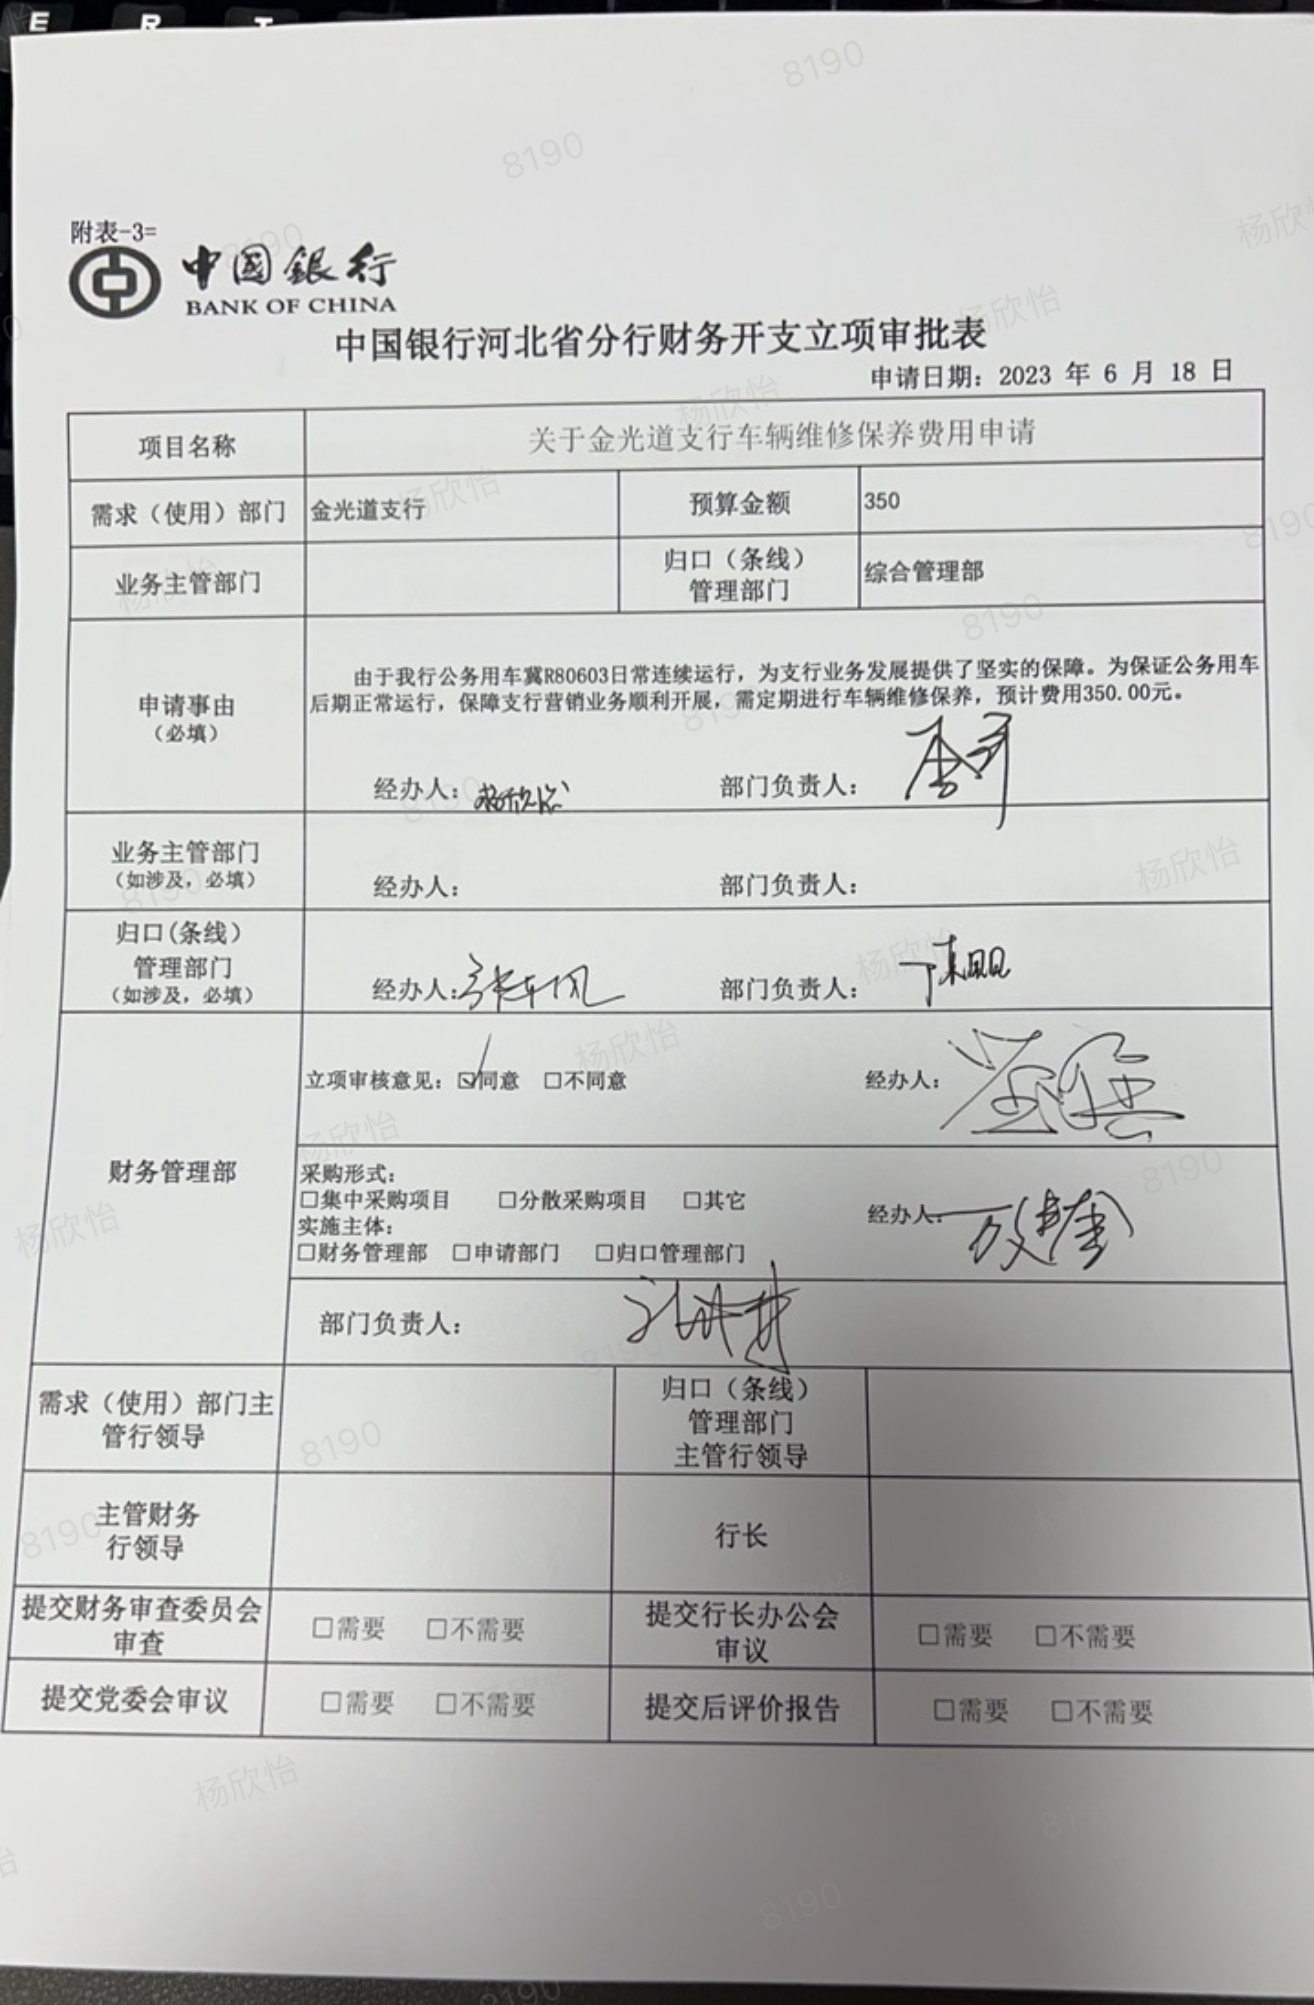 E R T
附表-3=
中國銀行
BANK OF CHINA
中国银行河北省分行财务开支立项审批表
申请日期：2023 年 6 月 18 日
项目名称 关于金光道支行车辆维修保养费用申请
需求（使用）部门 金光道支行 预算金额 350
业务主管部门 归口（条线）管理部门 综合管理部
申请事由
（必填）
由于我行公务用车冀R80603日常连续运行，为支行业务发展提供了坚实的保障。为保证公务用车
后期正常运行，保障支行营销业务顺利开展，需定期进行车辆维修保养，预计费用350.00元。
经办人：杨欣怡 部门负责人：
业务主管部门
（如涉及，必填）
经办人： 部门负责人：
归口(条线）
管理部门
（如涉及，必填）
经办人： 部门负责人：
财务管理部
立项审核意见：☑同意 □不同意 经办人：
采购形式：
□集中采购项目 □分散采购项目 □其它
实施主体：
□财务管理部 □申请部门 □归口管理部门
经办人：
部门负责人：
需求（使用）部门主
管行领导
归口（条线）
管理部门
主管行领导
主管财务
行领导
行长
提交财务审查委员会
审查
□需要 □不需要
提交行长办公会
审议
□需要 □不需要
提交党委会审议 □需要 □不需要 提交后评价报告 □需要 □不需要
杨欣怡
8190